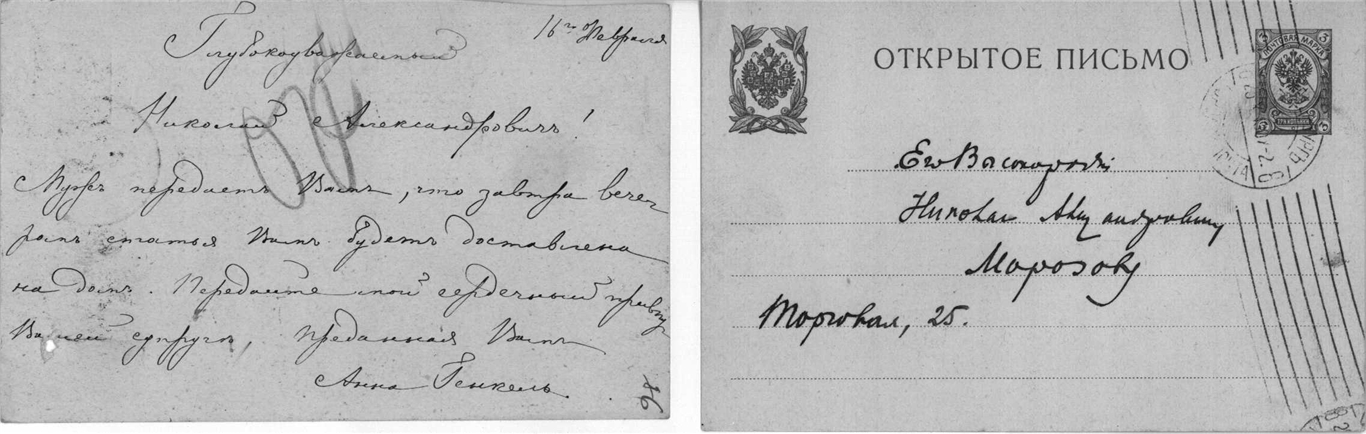 16го Февраля
Глубокоуважаемый
Николай Александровичъ!
Мужъ передаетъ Вамъ, что завтра вече
ромъ статья Вамъ будетъ доставлена
на домъ. Передайте мой сердечный привѣтъ
Вашей супругѣ, преданная Вамъ
Анна Генкель.
86
ОТКРЫТОЕ ПИСЬМО
3 ПОЧТОВАЯ МАРКА 3
3 ТРИ КОПѢЙКИ 3
Его Высокородію
Николаю Александровичу
Морозову
Торговая, 25.